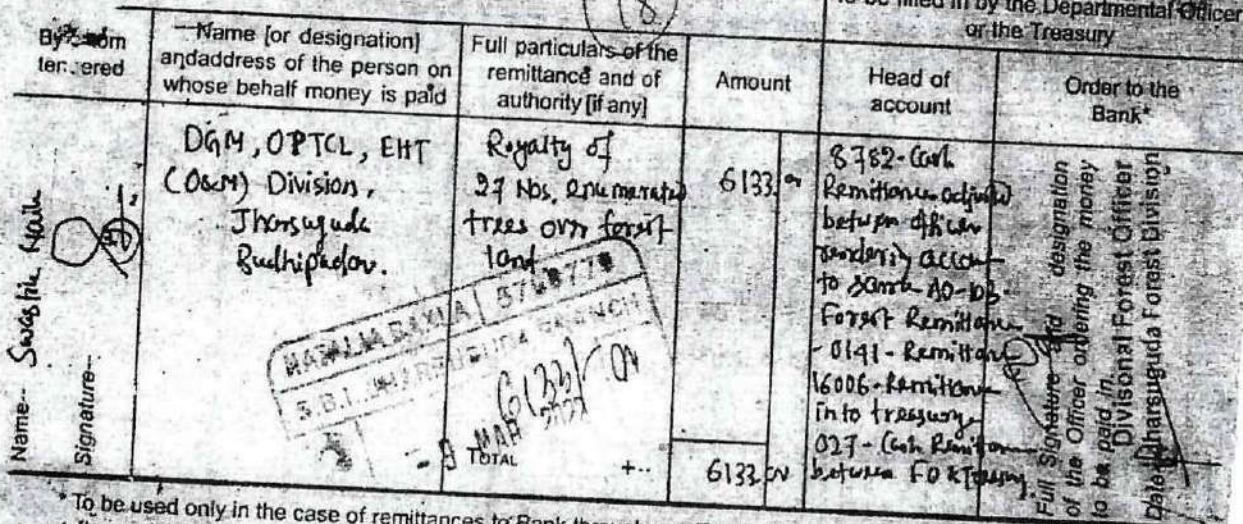 8
To be filled in by the Departmental Officer
or the Treasury
By whom
tendered
Name [or designation]
andaddress of the person on
whose behalf money is paid
Full particulars of the
remittance and of
authority [if any]
Amount
Head of
account
Order to the
Bank*
Name-- Swastik Naik
Signature--
DGM, OPTCL, EHT
(O&M) Division,
Jharsuguda
Budhipadar.
Royalty of
27 Nos. enumerated
trees over forest
land
6133
8782-Cash
Remittance adjusted
between officer
rendering account
to same AO-103-
Forest Remittance
-0141-Remittance
16006-Remittance
into treasury
027-Cash Remittance
between FO & Treasury
Full Signature and designation
of the Officer ordering the money
to be paid in.
Divisonal Forest Officer
Date Jharsuguda Forest Division
S.B.I. JHARSUGUDA BRANCH
6133/-
MAR
TOTAL
6133
* To be used only in the case of remittances to Bank